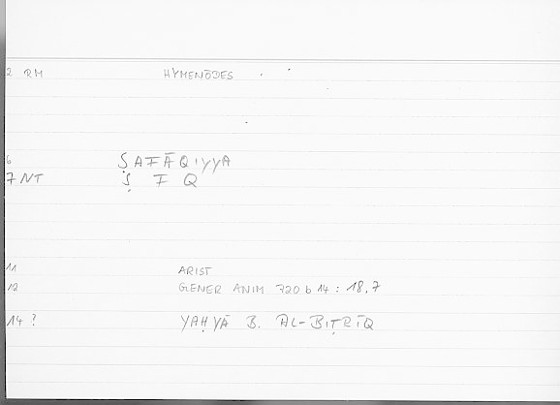 2 RM HYMENŌDES
6 ṢAFĀQIYYA
7 NT Ṣ F Q
11 ARIST
12 GENER ANIM 720 b 14 : 18.7
14 ? YAḤYĀ B. AL-BIṬRĪQ